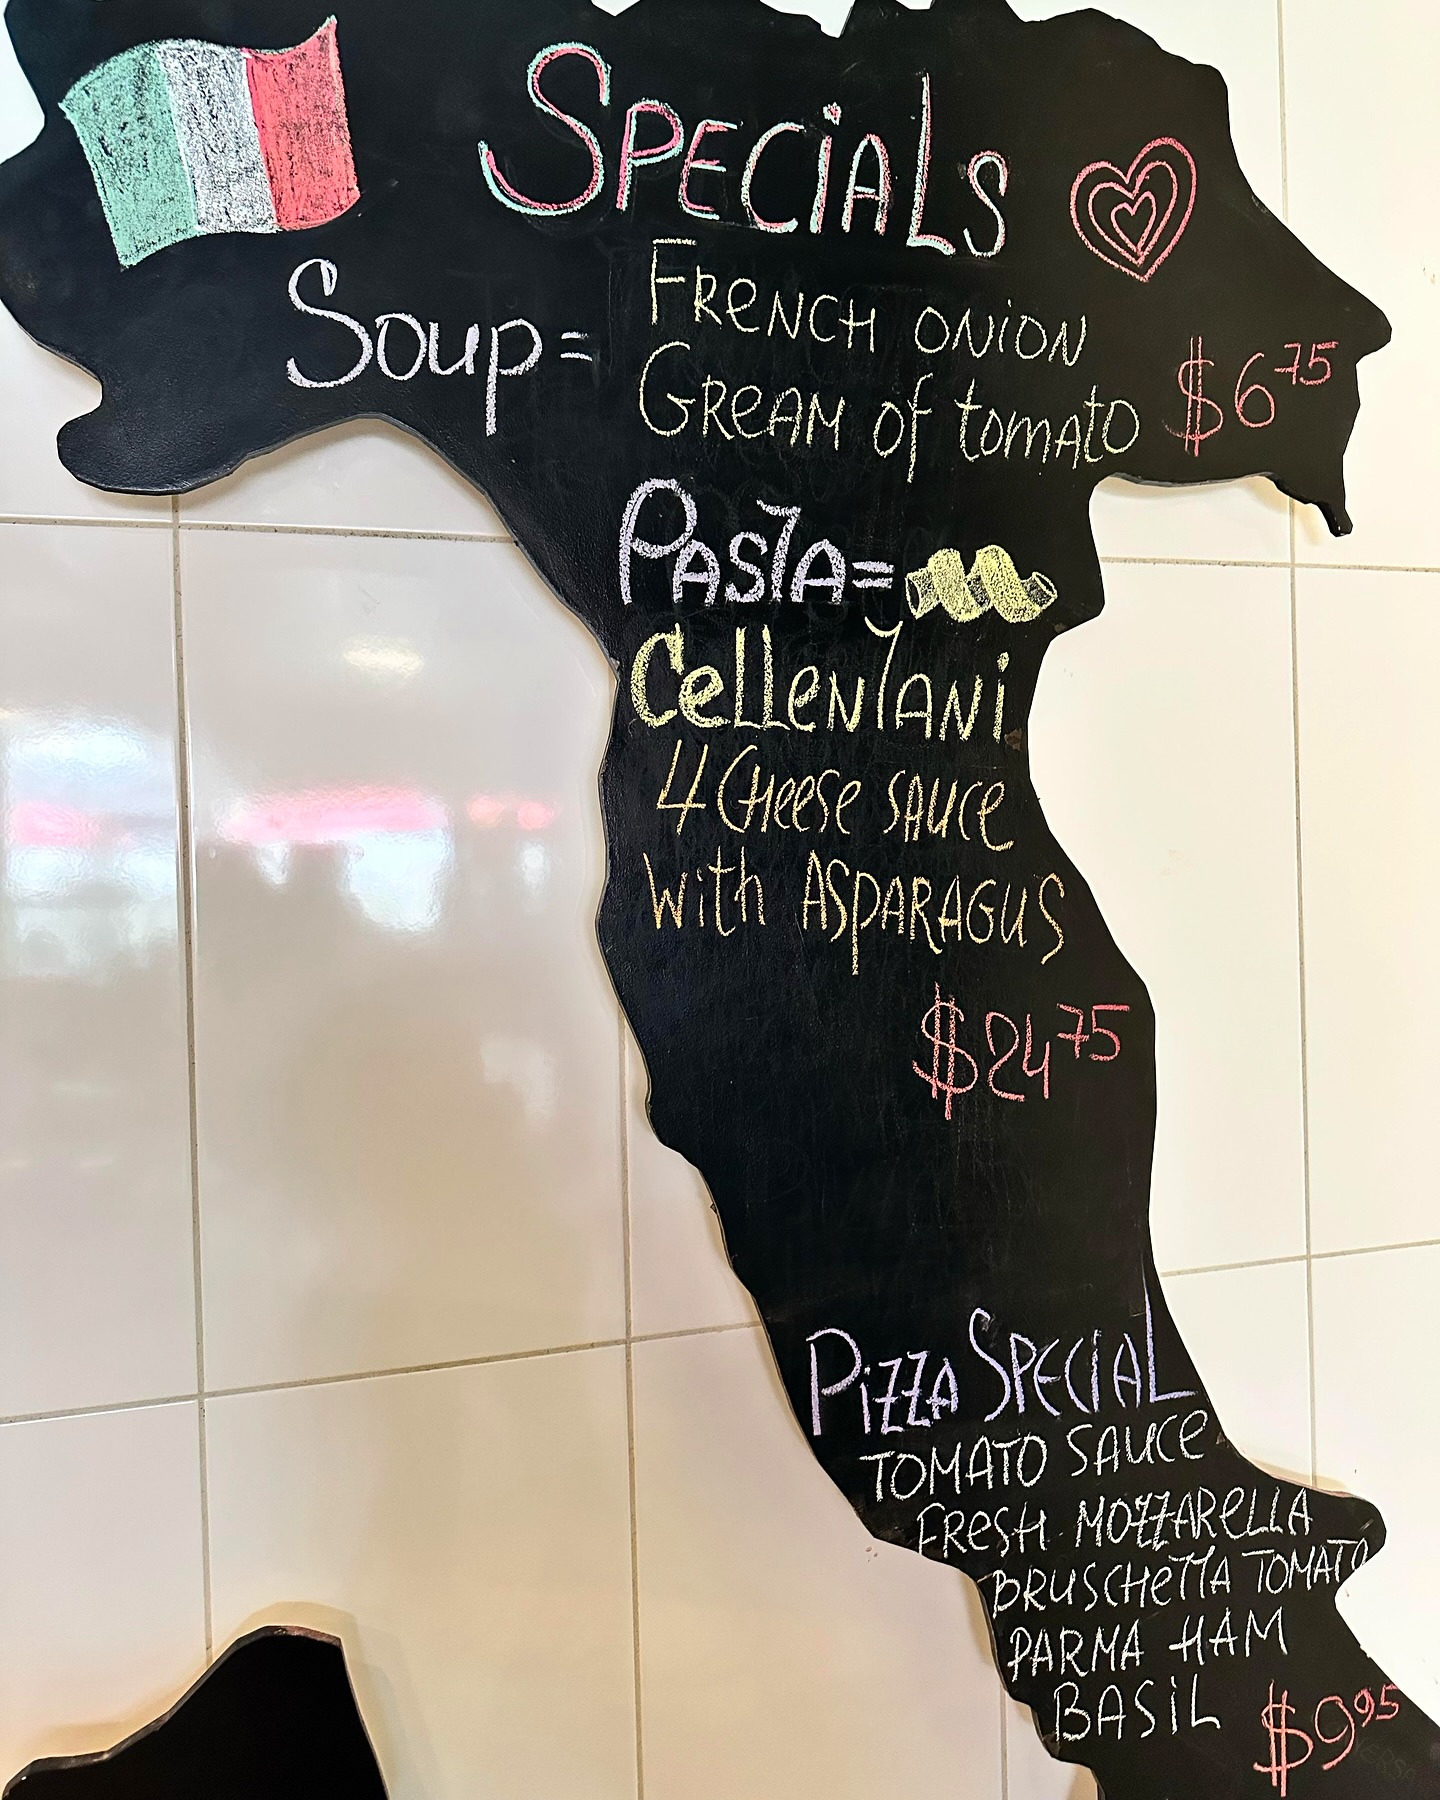 SPECIALS
Soup= FRENCH ONION
GREAM of tomato $6 75
PASTA=
CellenTANi
4 CHeese SAUCE
with ASPARAGUS
$24 75
PiZZA SPECiAL
TOMATO SAUCE
FRESH MOZZARELLA
BRUSCHETTA TOMATO
PARMA HAM
BASiL $9 95